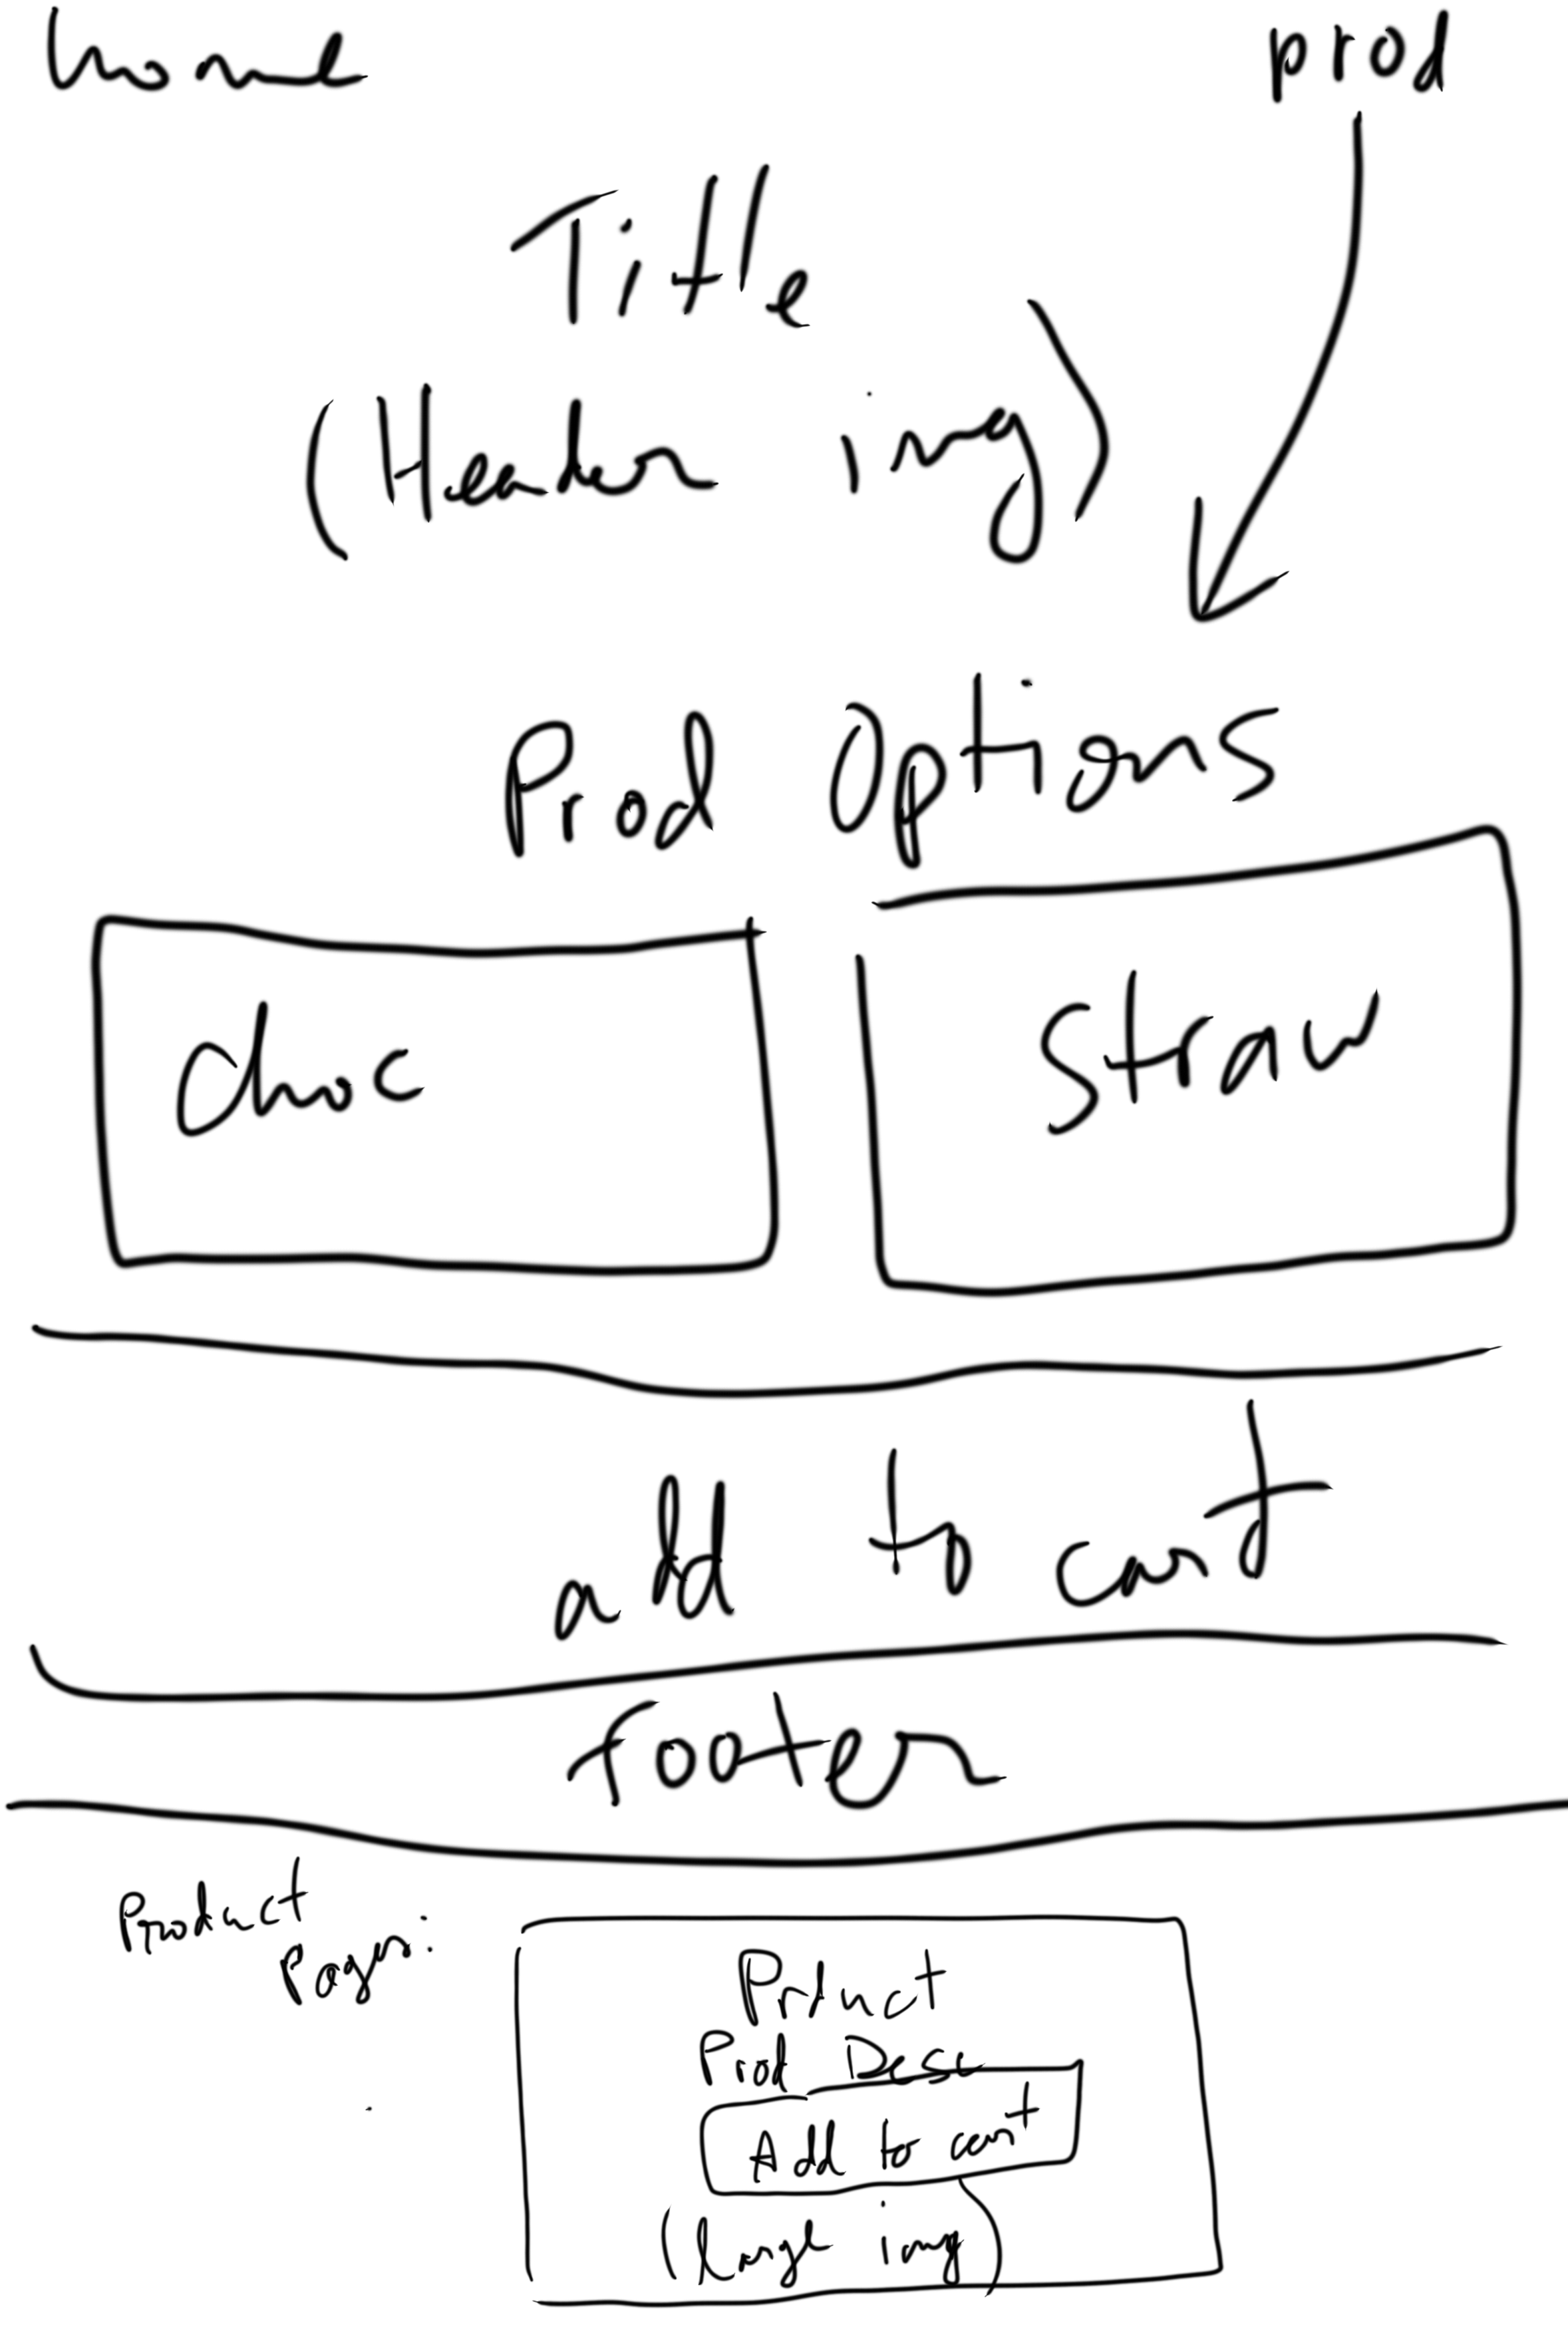 home prod
Title
(Header img)
Prod Options
choc straw
add to cart
footer
Product
Page:
Product
Prod Desc
Add to cart
(large img)